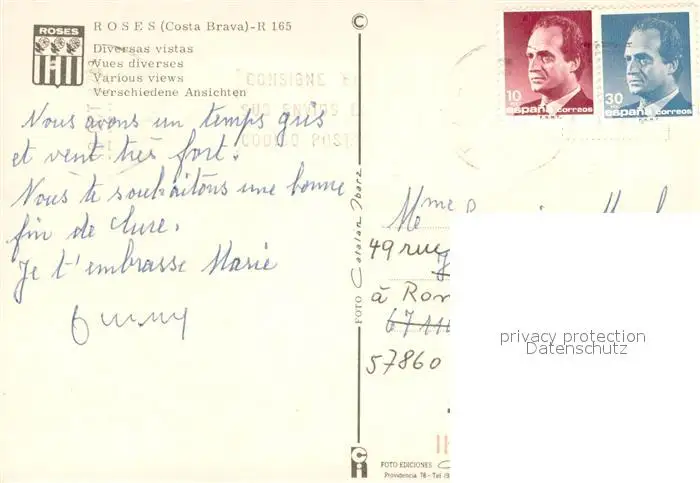 ROSES
ROSES (Costa Brava)-R 165
Diversas vistas
Vues diverses
Various views
Verschiedene Ansichten
CONSIGNE E
SUS ENVIOS L
CODIGO POST
Nous avons un temps gris
et vent très fort.
Nous te souhaitons une bonne
fin de cure.
Je t'embrasse Marie
©
FOTO Catalan Ibarz
10
españa correos
F.N.M.T.
30
españa correos
F.N.M.T.
Mme
49 rue
à Rom
57860
privacy protection
Datenschutz
FOTO EDICIONES C
Providencia